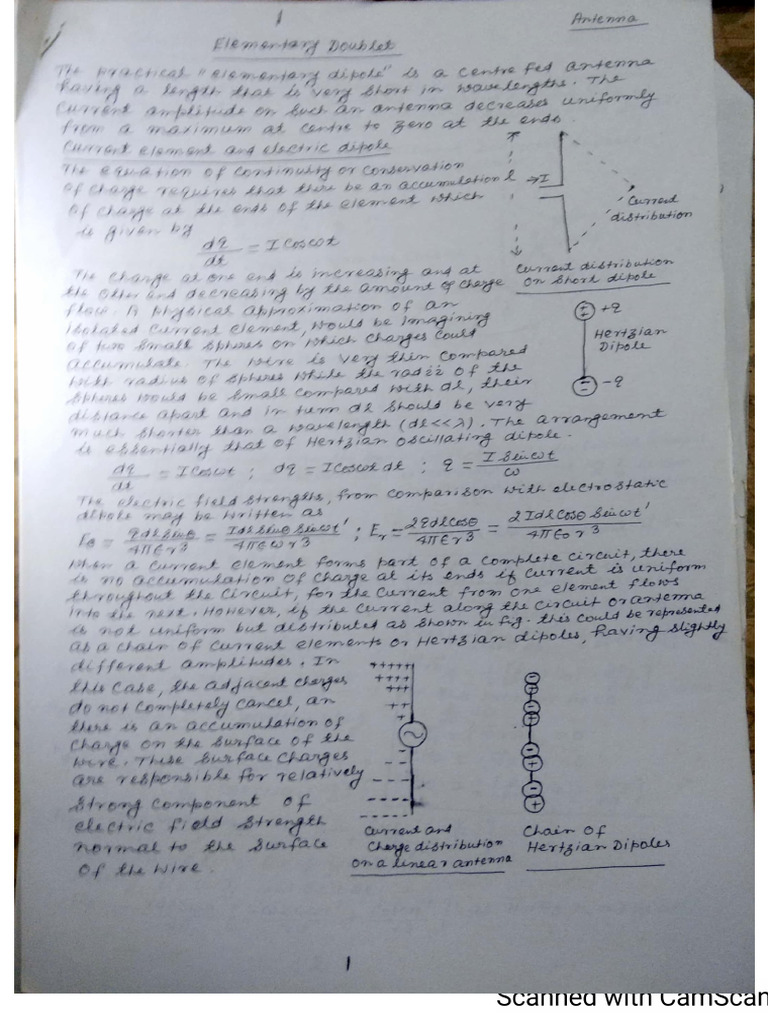 1
Antenna
Elementary Doublet
The practical "elementary dipole" is a centre fed antenna
having a length that is very short in wavelengths. The
current amplitude on such an antenna decreases uniformly
from a maximum at centre to zero at the ends.
Current element and electric dipole
The equation of continuity or conservation
of charge requires that there be an accumulation
of charge at the ends of the element which
is given by
dq/dt = I cos ωt
l
I
Current
distribution
Current distribution
on short dipole
The charge at one end is increasing and at
the other end decreasing by the amount of charge
flow. A physical approximation of an
isolated current element, would be imagining
of two small spheres on which charges could
accumulate. The wire is very thin compared
with radius of spheres while the radii of the
spheres would be small compared with dl, their
distance apart and in turn dl should be very
much shorter than a wavelength (dl<<λ). The arrangement
is essentially that of Hertzian oscillating dipole.
+q
Hertzian
Dipole
-q
dq/dt = I cos ωt ; dq = I cos ωt dt ; q = I sin ωt/ω
The electric field strengths, from comparison with electrostatic
dipole may be written as
Eθ = qdl sinθ/4πεr³ = Idl sinθ sinωt'/4πεωr³ ; Er = 2qdl cosθ/4πεr³ = 2Idl cosθ sinωt'/4πε₀r³
When a current element forms part of a complete circuit, there
is no accumulation of charge at its ends if current is uniform
throughout the circuit, for the current from one element flows
into the next. However, if the current along the circuit or antenna
is not uniform but distributed as shown in fig. this could be represented
as a chain of current elements or Hertzian dipoles, having slightly
different amplitudes. In
this case, the adjacent charges
do not completely cancel, an
there is an accumulation of
charge on the surface of the
wire. These surface charges
are responsible for relatively
strong component of
electric field strength
normal to the surface
of the wire.
Current and
Charge distribution
on a linear antenna
Chain of
Hertzian Dipoles
1
Scanned with CamScan